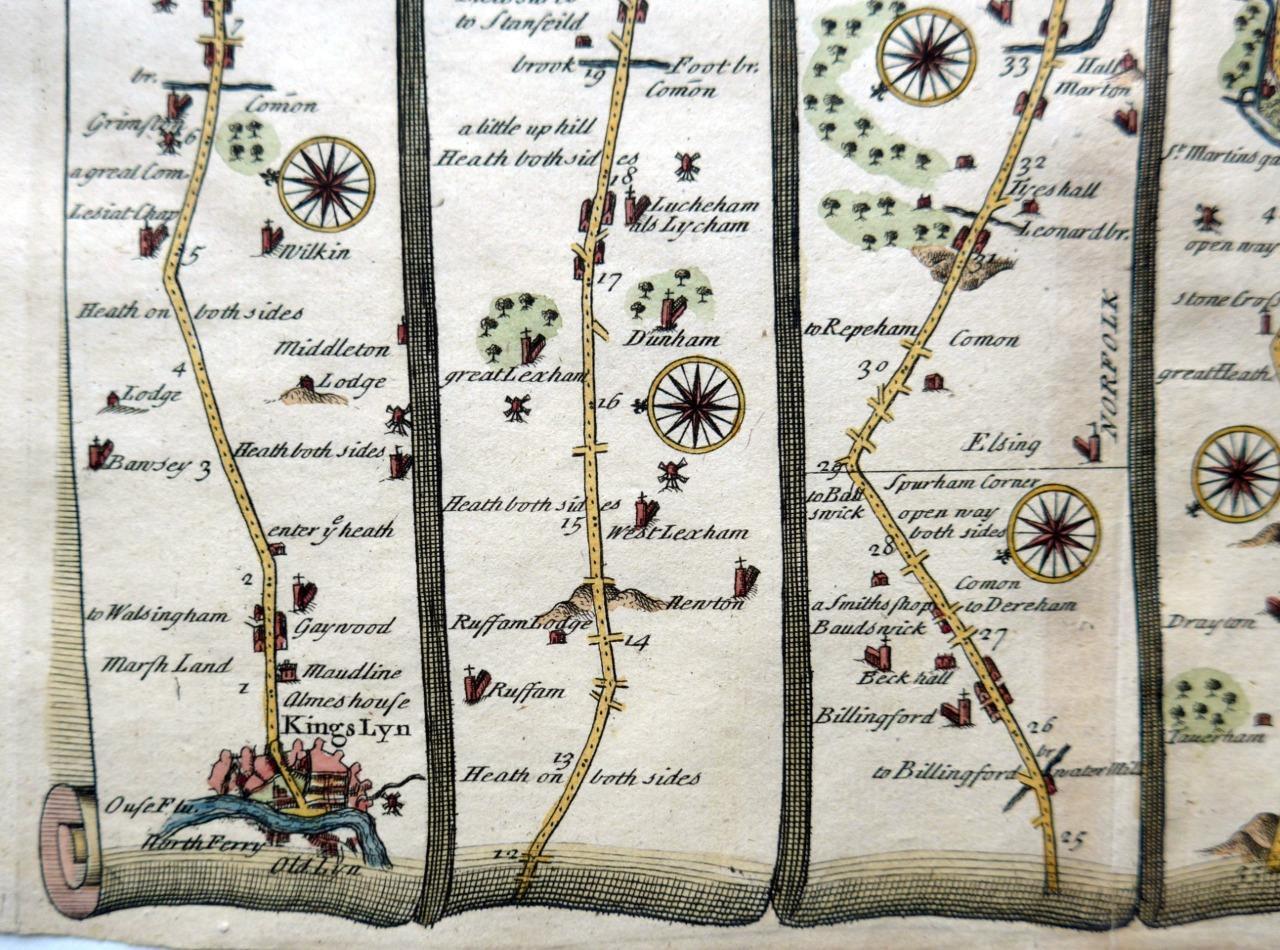 7
br.
Comon
Grimston
6
a great Com.
Lesiat Chap
5
Wilkin
Heath on both sides
Middleton
4
Lodge
Lodge
Heath both sides
Bawsey
3
enter ye heath
2
to Walsingham
Gaywood
Marsh Land
Maudline
1
Almeshouse
Kings Lyn
Ouse Flu.
North Ferry
Old Lyn
to Stanfeild
brook
19
Foot br.
Comon
a little up hill
Heath both sides
18
Lucheham
als Lycham
17
Dunham
great Lexham
16
Heath both sides
15
West Lexham
Newton
Ruffam Lodge
14
Ruffam
13
Heath on both sides
12
33
Hall
Marton
32
Iveshall
Leonard br.
31
to Repeham
Comon
30
NORFOLK
Elsing
29
Spurham Corner
to Baudswick
open way
both sides
28
Comon
a Smiths shop
to Dereham
Baudswick
27
Beck hall
Billingford
26
br
to Billingford
water Mill
25
St. Martins ga
4
open way
Stone Cros
great Heath
Drayton
Taverham